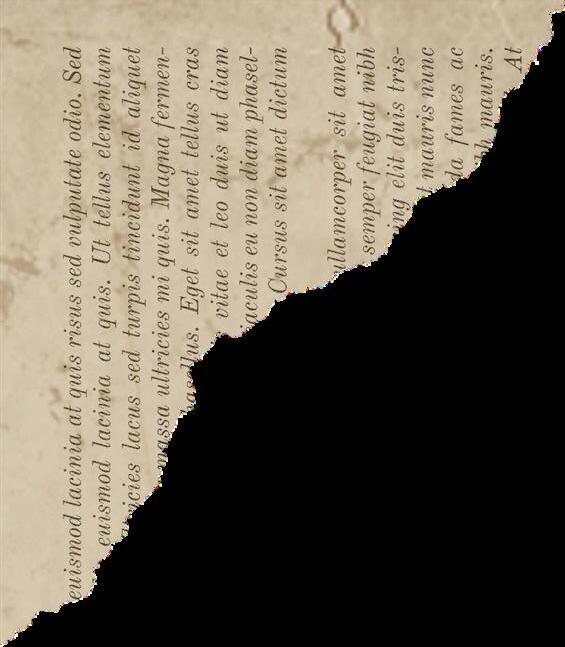 euismod lacinia at quis risus sed vulputate odio. Sed
euismod lacinia at quis. Ut tellus elementum
ultricies lacus sed turpis tincidunt id aliquet
massa ultricies mi quis. Magna fermen-
phasellus. Eget sit amet tellus cras
vitae et leo duis ut diam
iaculis eu non diam phasel-
Cursus sit amet dictum
ullamcorper sit amet
semper feugiat nibh
elit duis tris-
mauris nunc
fames ac
mauris. At